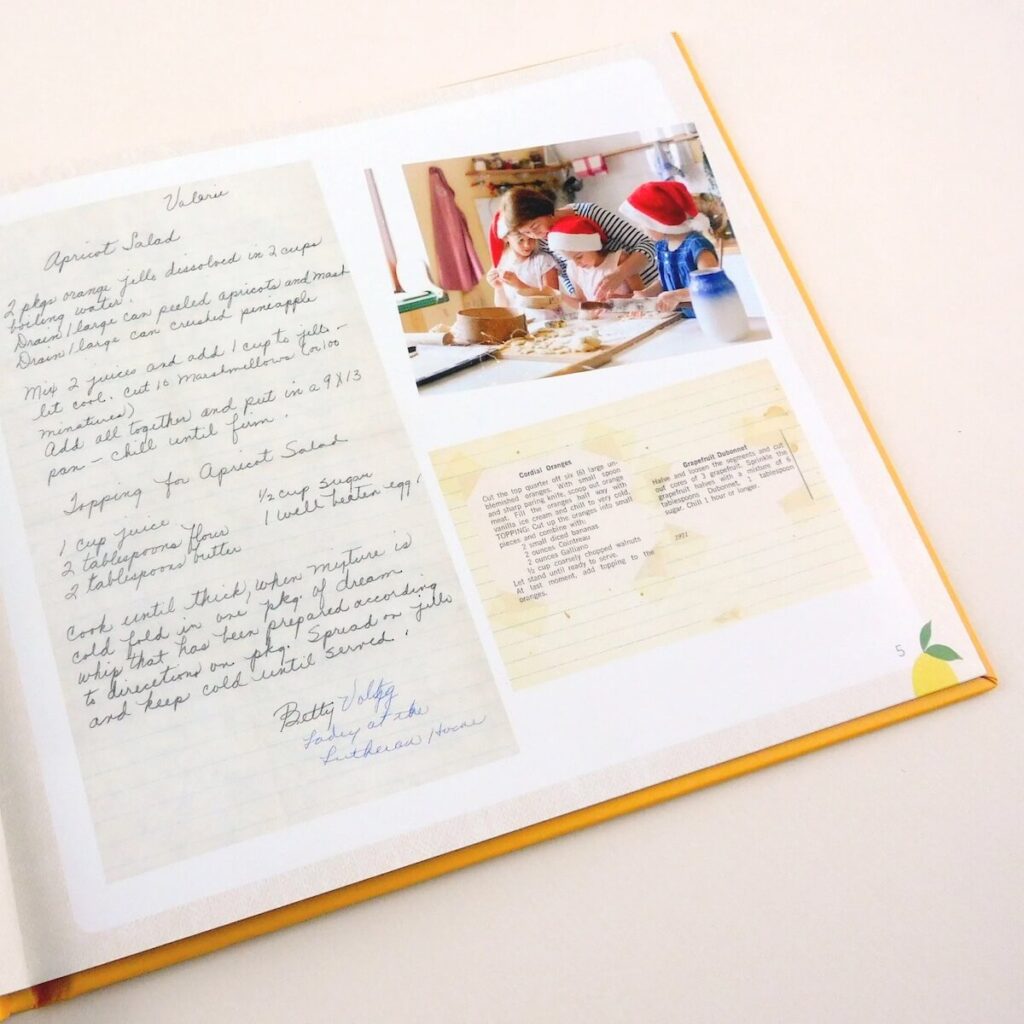 Valerie
Apricot Salad
2 pkgs orange jello dissolved in 2 cups
boiling water.
Drain 1 large can peeled apricots and mash
Drain 1 large can crushed pineapple
Mix 2 juices and add 1 cup to jello -
let cool. Cut 10 Marshmellows (or 100
minatures)
Add all together and put in a 9X13
pan - chill until firm.
Topping for Apricot Salad
1 cup juice 1/2 cup sugar
2 tablespoons flour 1 well beaten egg
2 tablespoons butter
Cook until thick, when mixture is
cold fold in one pkg. of dream
whip that has been prepared according
to direcetions on pkg. Spread on jello
and keep cold until served.
Betty
Lady at the
Lutheran Home
Cordial Oranges
Cut the top quarter off six (6) large un-
blemished oranges. With small spoon
and sharp paring knife, scoop out orange
meat. Fill the oranges half way with
vanilla ice cream and chill to very cold.
TOPPING: Cut up the oranges into small
pieces and combine with:
2 small diced bananas
2 ounces Cointreau
2 ounces Galliano
½ cup coarsely chopped walnuts
Let stand until ready to serve.
At last moment, add topping to the
oranges.
Grapefruit Dubonnet
Halve and loosen the segments and cut
out cores of 3 grapefruit. Sprinkle the
grapefruit halves with a mixture of 6
tablespoons Dubonnet, 1 tablespoon
sugar. Chill 1 hour or longer.
1971
5